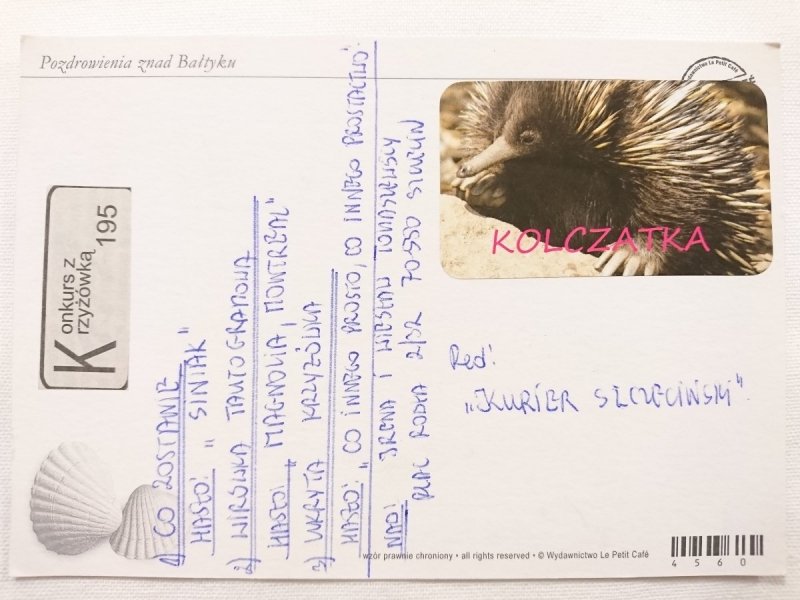 Pozdrowienia znad Bałtyku
Wydawnictwo Le Petit Café
KOLCZATKA
Konkurs z
Krzyżówką
195
1) CO ZOSTANIE
HASŁO: „SINIAK"
2) WIRÓWKA TAUTOGRAMOWA
HASŁO: „MAGNOLIA, MONTREAL"
3) UKRYTA KRZYŻÓWKA
HASŁO: „CO INNEGO PROSTO, CO INNEGO PROSTACTWO.
NAD: IRENA I WIESŁAW TOMASZEWSCY
PLAC RODŁA 2/32 70550
Red:
„KURIER SZCZECIŃSKI".
wzór prawnie chroniony • all rights reserved • © Wydawnictwo Le Petit Café
4560